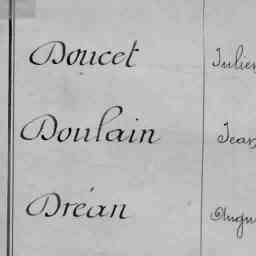 Doucet Julien
Doulain Jean
Dréan Augu